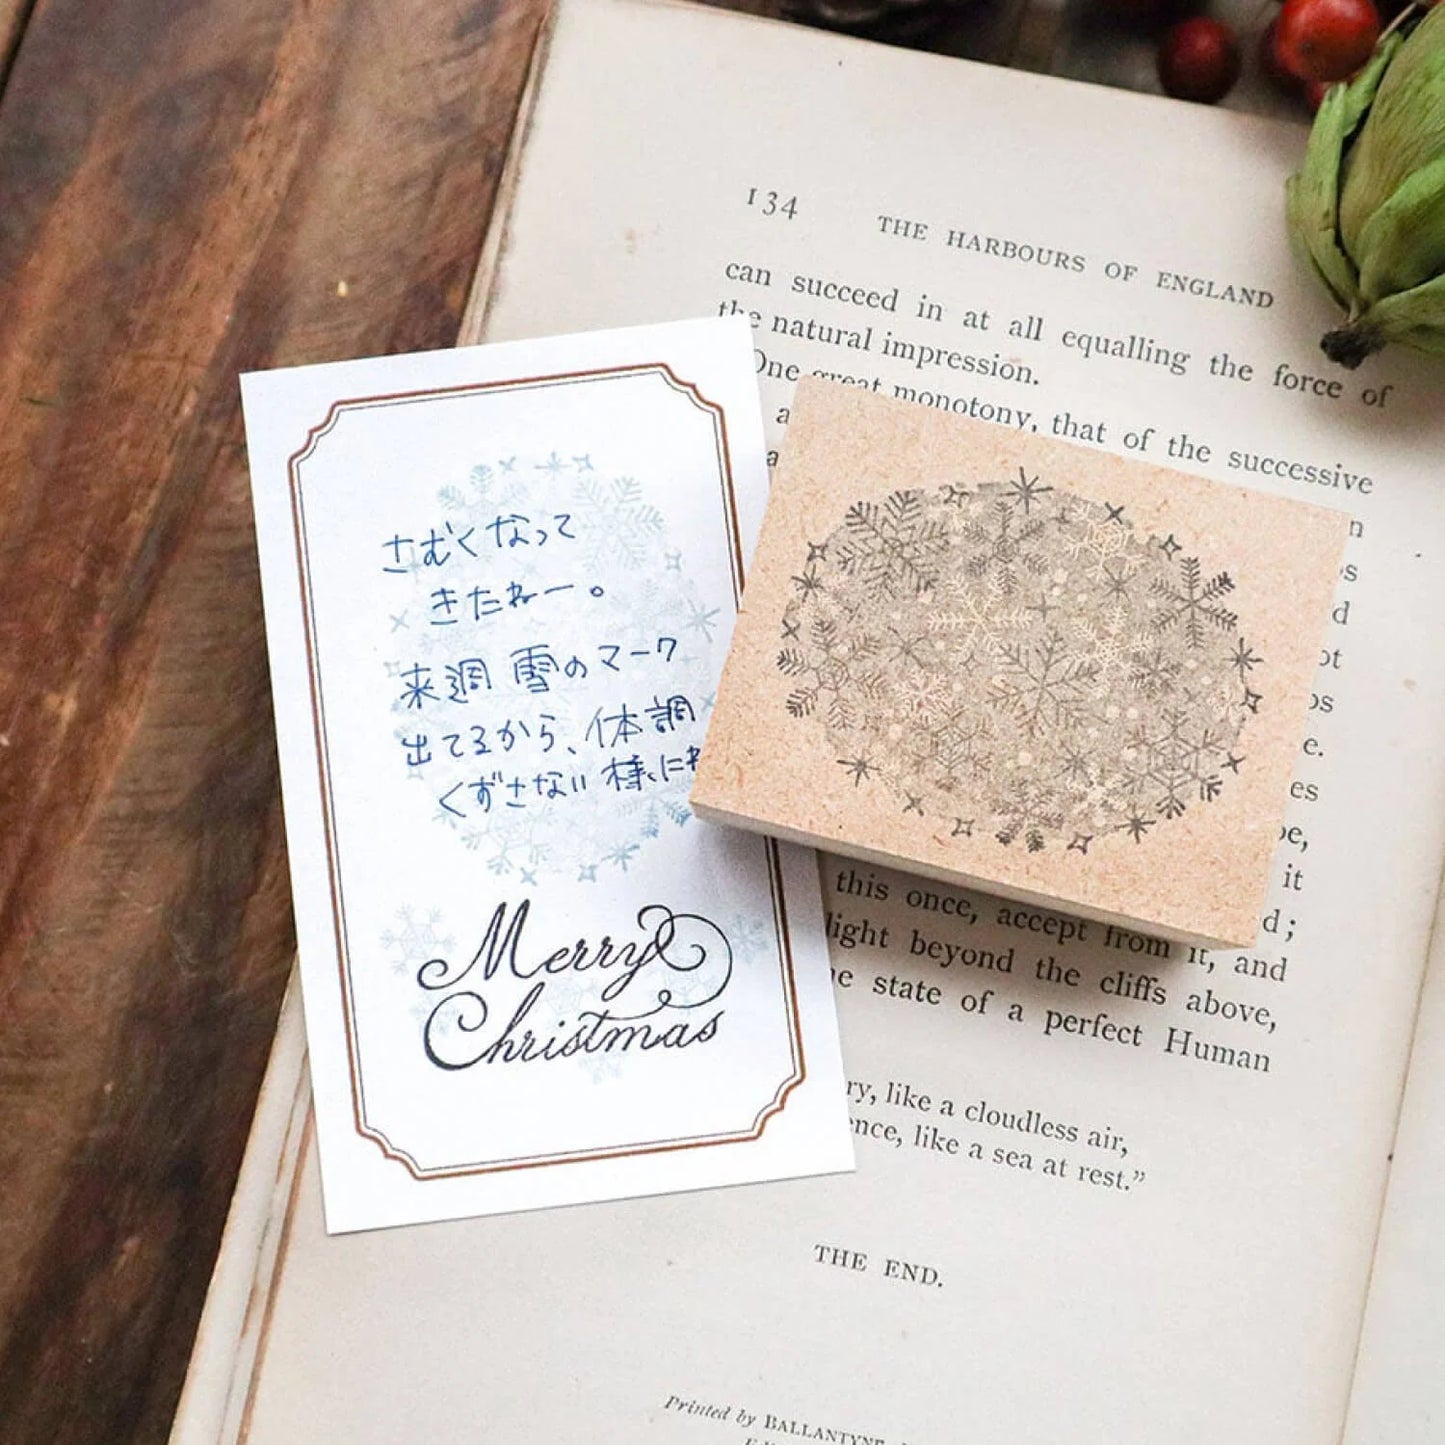 134 THE HARBOURS OF ENGLAND
can succeed in at all equalling the force of
the natural impression.
One great monotony, that of the successive
this once, accept from it, and
light beyond the cliffs above,
state of a perfect Human
like a cloudless air,
like a sea at rest.”
THE END.
Printed by BALLANTYNE
さむくなって
きたねー。
来週 雪のマーク
出てるから、体調
くずさない様にね
Merry
Christmas